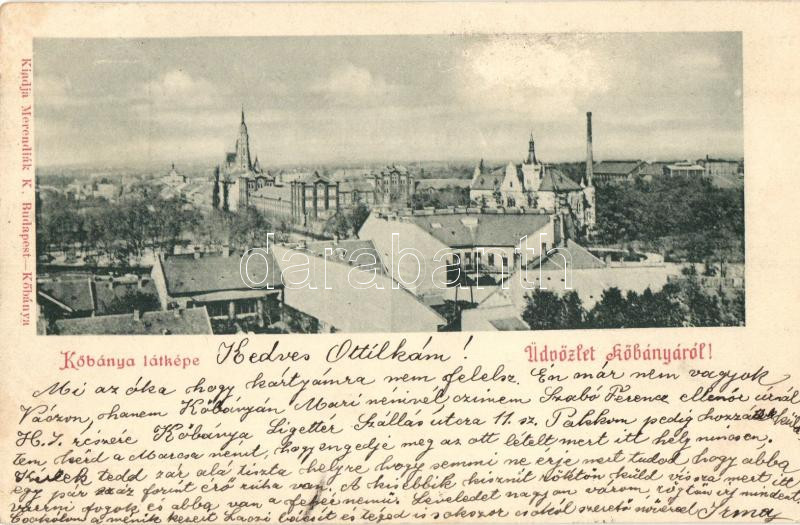 Kiadja Merendiák K. Budapest—Kőbánya
darabanth.com
Kőbánya látképe
Üdvözlet Kőbányáról!
Kedves Ottilkám!
Mi az óka hogy kártyámra nem felelsz. Én már nem vagyok
Vácon, hanem Kőbányán Mari nénivel, czimem Szabó Ferencz ellenőr úrnál
H. I. részére Kőbánya Ligettér Szállás utcza 11. sz. pedig
tem kérd a nénit, hogy engedje meg az ott lételt mert itt hely nincsen.
Kérlek tedd zár alá tiszta helyre hogy semmi ne érje mert tudod hogy abba
egy pár száz forint érő ruha van. A kisebbik küld vissza mert itt
varrni fogok és abba van a fehérnemű. Leveledet nagyon várom, rögtön irj mindent
Csókolom a nénik kezeit Laczi és téged is sokszor csókol szerető nővéred Irma